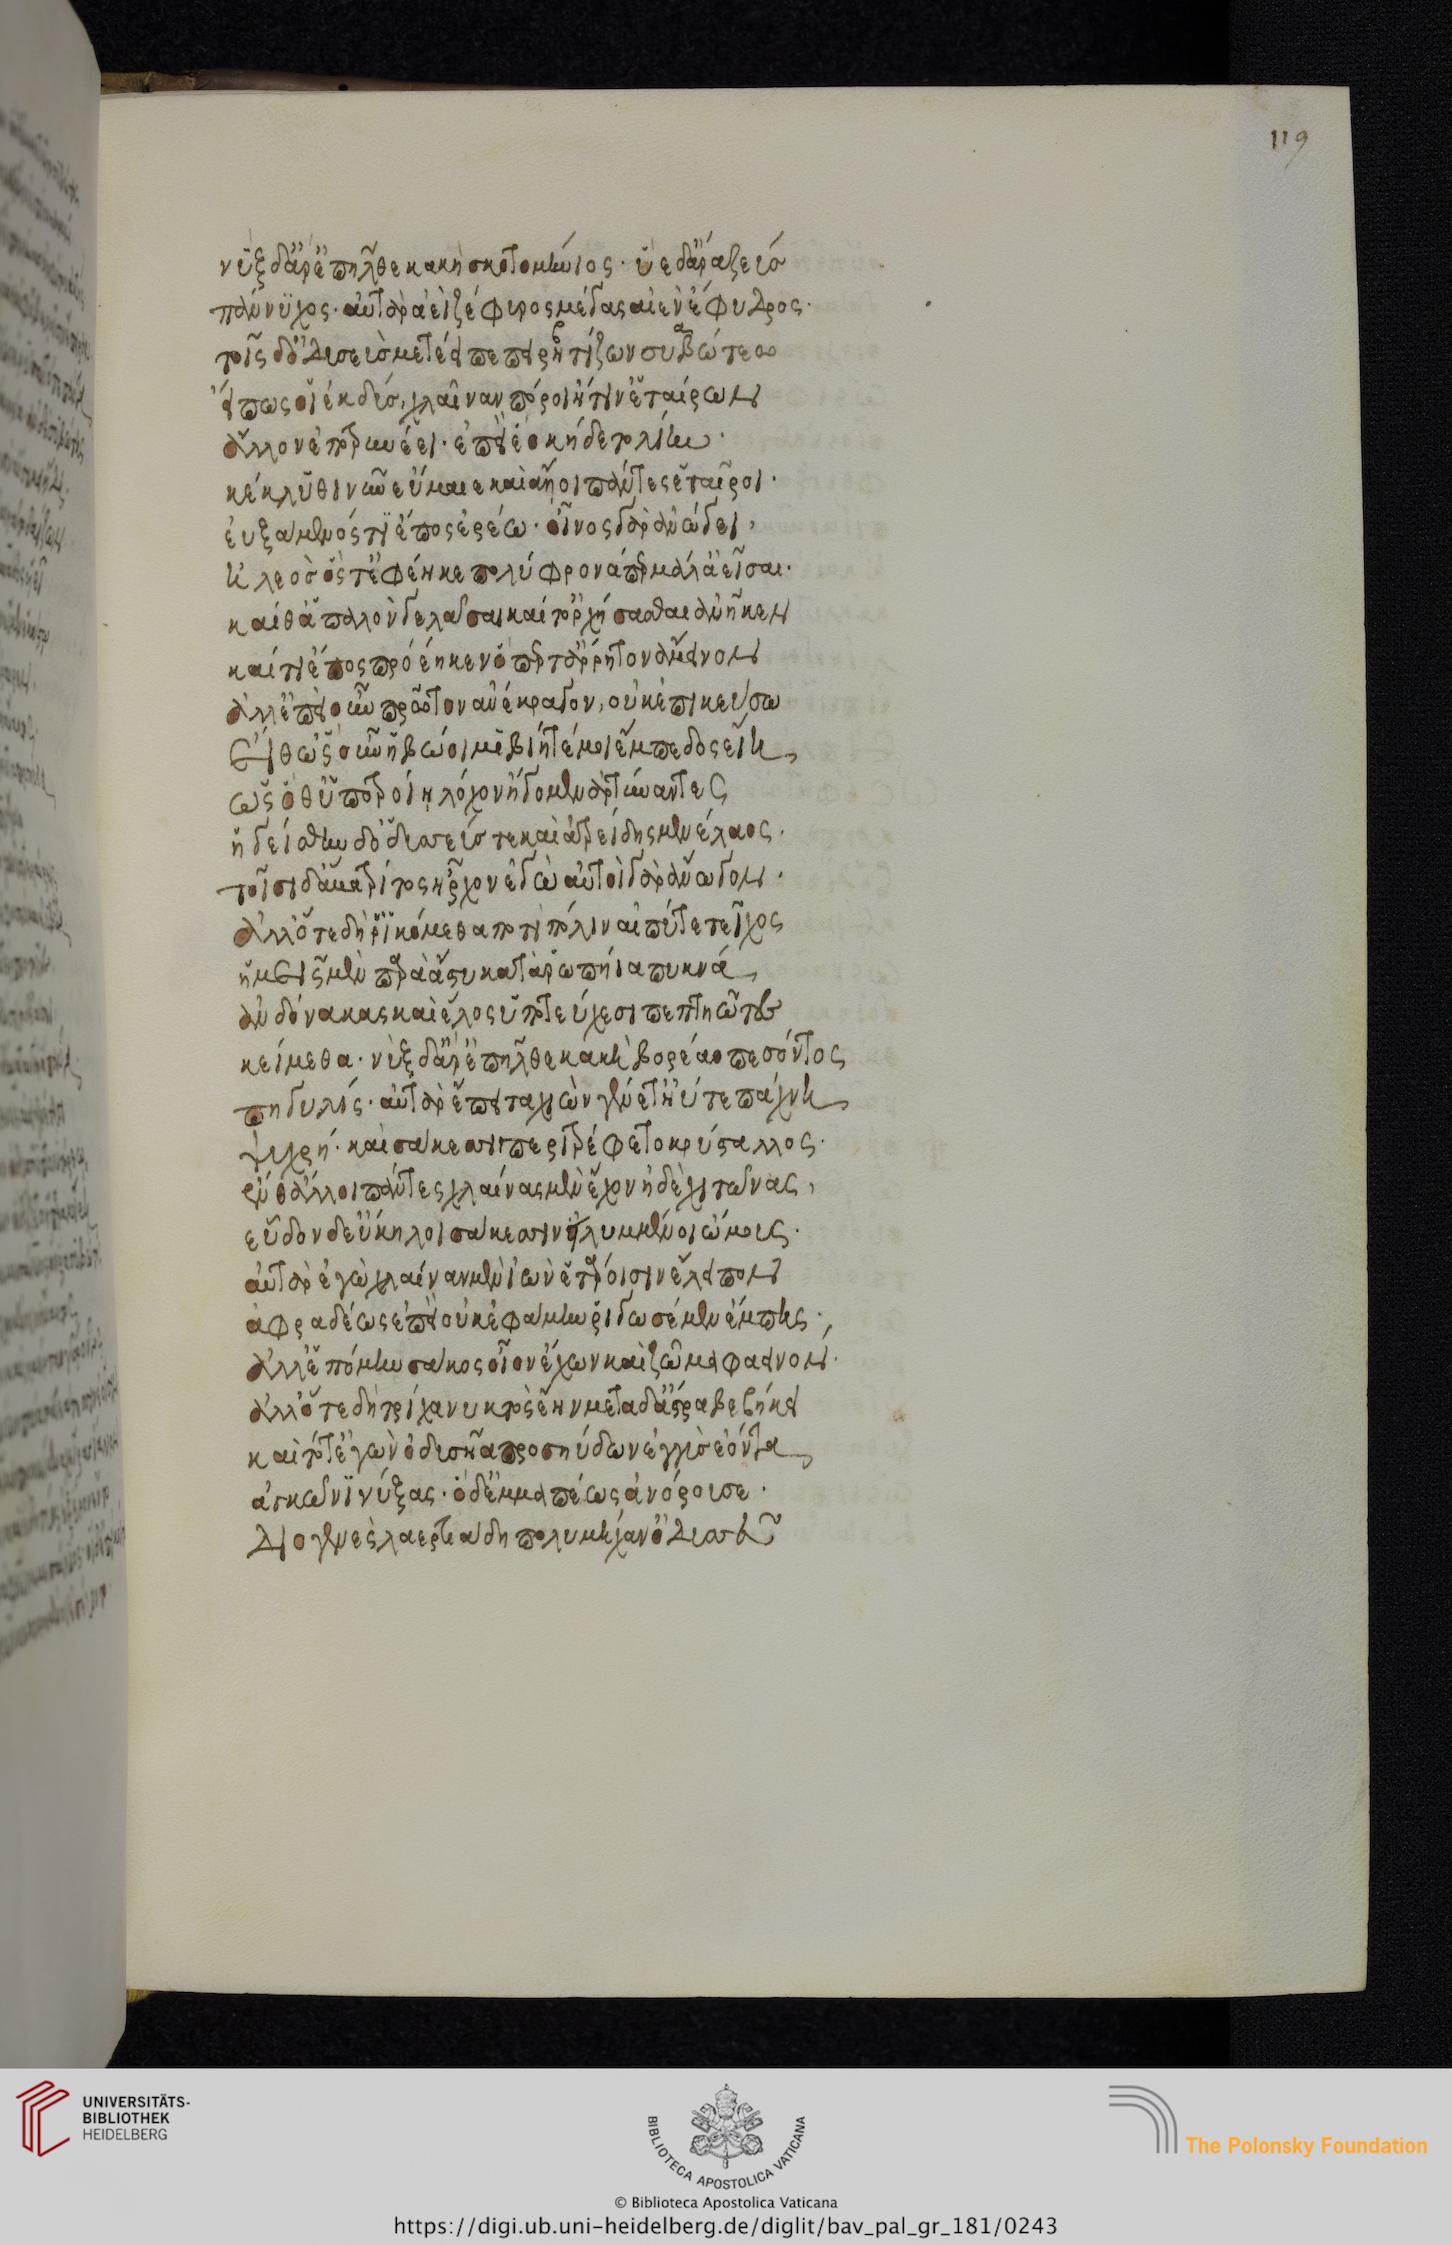 119
νὺξ δ' ἄρ' ἐπῆλθε κακὴ σκοτομήνιος· ὗε δ' ἄρα ζεὺς
πάννυχος· αὐτὰρ ἄει ζέφυρος μέγας αἰὲν ἔφυδρος·
τοῖς δ' ὀδυσεὺς μετέειπε συβώτεω πειρητίζων
εἴ πως οἱ ἐκδὺς χλαῖναν πόροι ἤ τιν' ἑταίρων
ἄλλον ἐποτρύνειεν· ἐπεὶ ἑο κήδετο λίην·
κέκλυθι νῦν εὔμαιε καὶ ἄλλοι πάντες ἑταῖροι·
εὐξάμενός τι ἔπος ἐρέω· οἶνος γὰρ ἀνώγει,
ἠλεὸς ὅς τ' ἐφέηκε πολύφρονά περ μάλ' ἀεῖσαι·
καί θ' ἁπαλὸν γελάσαι καί τ' ὀρχήσασθαι ἀνῆκεν
καί τι ἔπος προέηκεν ὅπερ τ' ἄρρητον ἄμεινον
ἀλλ' ἐπεὶ οὖν πρῶτον ἀνέκραγον, οὐκ ἐπικεύσω
εἴθ' ὣς ἡβώοιμι βίη τέ μοι ἔμπεδος εἴη,
ὡς ὅθ' ὑπὸ τροίη λόχον ἤγομεν ἀρτύναντες
ἡγείσθην δ' ὀδυσεύς τε καὶ ἀτρείδης μενέλαος·
τοῖσι δ' ἅμα τρίτος ἦρχον ἐγὼ αὐτοὶ γὰρ ἄνωγον·
ἀλλ' ὅτε δή ῥ' ἱκόμεθα ποτὶ πόλιν αἰπύ τε τεῖχος
ἡμεῖς μὲν περὶ ἄστυ κατὰ ῥωπήια πυκνά,
ἂν δόνακας καὶ ἕλος ὑπὸ τεύχεσι πεπτηῶτες
κείμεθα· νὺξ δ' ἄρ' ἐπῆλθε κακὴ βορέαο πεσόντος
πηγυλίς· αὐτὰρ ὕπερθε χιὼν γένετ' ἠύτε πάχνη,
ψυχρή· καὶ σακέεσσι περιτρέφετο κρύσταλλος·
ἔνθ' ἄλλοι πάντες χλαίνας μὲν ἔχον ἠδὲ χιτῶνας,
εὗδον δ' εὔκηλοι σάκεσιν εἰλυμένοι ὤμους·
αὐτὰρ ἐγὼ χλαῖναν μὲν ἰὼν ἑτάροισιν ἔλειπον
ἀφραδέως ἐπεὶ οὐκ ἐφάμην ῥιγωσέμεν ἔμπης·
ἀλλ' ἑπόμην σάκος οἶον ἔχων καὶ ζῶμα φαεινόν·
ἀλλ' ὅτε δὴ τρίχα νυκτὸς ἔην μετὰ δ' ἄστρα βεβήκει
καὶ τότ' ἐγὼν ὀδυσῆα προσηύδων ἐγγὺς ἐόντα,
ἀγκῶνι νύξας· ὁ δ' ἐμμαπέως ἀνόρουσε·
διογενὲς λαερτιάδη πολυμήχαν' ὀδυσσεῦ
UNIVERSITÄTS-
BIBLIOTHEK
HEIDELBERG
BIBLIOTECA APOSTOLICA VATICANA
The Polonsky Foundation
© Biblioteca Apostolica Vaticana
https://digi.ub.uni-heidelberg.de/diglit/bav_pal_gr_181/0243